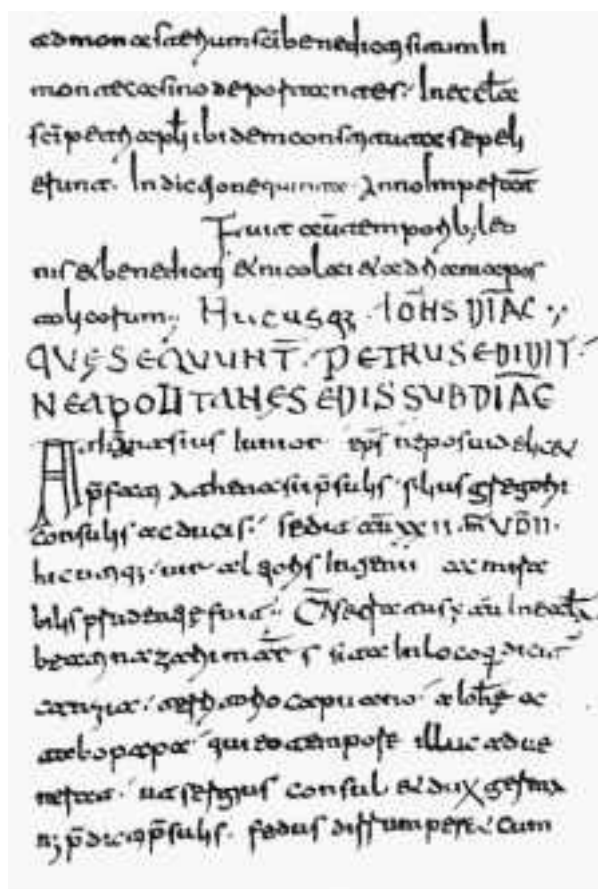 ad monasterium sci benedicti situm In
monte casino deportantes. In eccla
sci petri apli ibidem constituta sepeli
erunt. Indictione quinta. Anno Imperat
Fuit aut temporib; leo
nis et benedicti et nicolai et adriani apos
tolicorum. Hucusq; IOHS DIAC
QUE SEQUUNT. PETRUS EDIDIT
NEAPOLITANE SEDIS SUBDIAC
Athanasius Iunior eps nepos uidelicet
pfati Athanasii psulis. filius gregorii
consulis ac ducis. sedit ann xxii. m V D II.
hic uir Ingenii ac mira
bilis prudentie fuit. In eccl
beati nazarii mar sita In loco q dicit
capuano a iohe ac
papa qui eo tempore illuc adue
nerat. ut sergius consul et dux germa
n; pdicti psulis. fedus dirrumperet cum